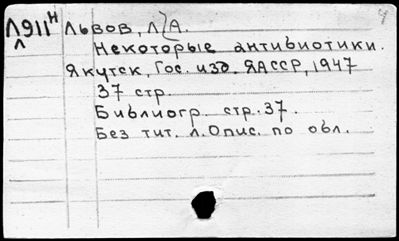 Л911Н Львов, Л.А.
Некоторые антибиотики.
Якутск, Гос. изд. ЯАССР, 1947
37 стр.
Библиогр. стр. 37.
Без тит. л. Опис. по обл.